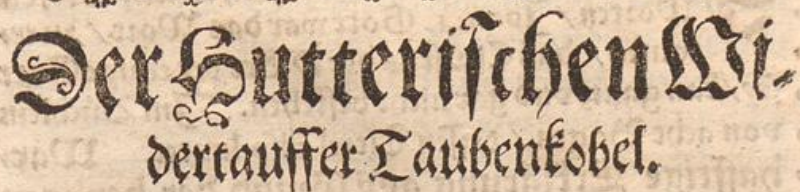 Der Hutteriſchen Wi-
dertauffer Taubenkobel.